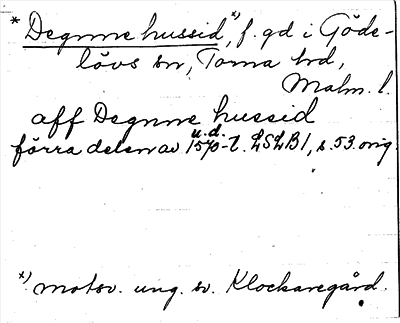 * Degnne hussid *), f. gd i Göde-
lövs sn, Torna hd,
Malm. l.
aff Degnne hussid
u. d.
förra delen av 1570-t. LSLB 1, s. 53. orig.
*) motsv. ung. sv. Klockaregård.